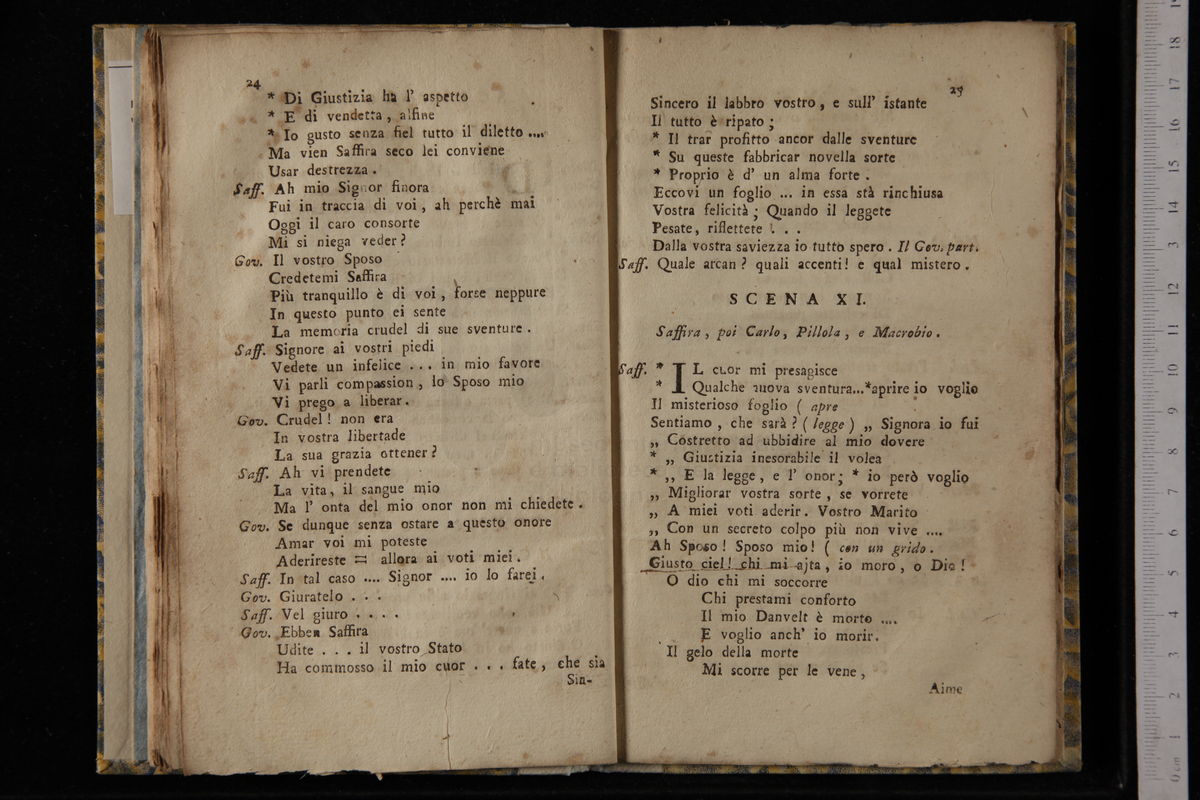 24
* Di Giustizia ha l' aspetto
* E di vendetta, alfine
* Io gusto senza fiel tutto il diletto ....
Ma vien Saffira seco lei conviene
Usar destrezza.
Saff. Ah mio Signor finora
Fui in traccia di voi, ah perchè mai
Oggi il caro consorte
Mi si niega veder?
Gov. Il vostro Sposo
Credetemi Saffira
Più tranquillo è di voi, forse neppure
In questo punto ei sente
La memoria crudel di sue sventure.
Saff. Signore ai vostri piedi
Vedete un infelice ... in mio favore
Vi parli compassion, lo Sposo mio
Vi prego a liberar.
Gov. Crudel! non era
In vostra libertade
La sua grazia ottener?
Saff. Ah vi prendete
La vita, il sangue mio
Ma l' onta del mio onor non mi chiedete.
Gov. Se dunque senza ostare a questo onore
Amar voi mi poteste
Aderireste = allora ai voti miei.
Saff. In tal caso .... Signor .... io lo farei.
Gov. Giuratelo . . .
Saff. Vel giuro . . . .
Gov. Ebben Saffira
Udite . . . il vostro Stato
Ha commosso il mio cuor . . . fate, che sia
Sin-
25
Sincero il labbro vostro, e sull' istante
Il tutto è ripato;
* Il trar profitto ancor dalle sventure
* Su queste fabbricar novella sorte
* Proprio è d' un alma forte.
Eccovi un foglio ... in essa stà rinchiusa
Vostra felicità; Quando il leggete
Pesate, riflettete ! . .
Dalla vostra saviezza io tutto spero. Il Gov. part.
Saff. Quale arcan? quali accenti! e qual mistero.
SCENA XI.
Saffira, poi Carlo, Pillola, e Macrobio.
Saff. * IL cuor mi presagisce
* Qualche nuova sventura...*aprire io voglio
Il misterioso foglio ( apre
Sentiamo, che sarà? ( legge ) „ Signora io fui
„ Costretto ad ubbidire al mio dovere
* „ Giustizia inesorabile il volea
* ,, E la legge, e l' onor; * io però voglio
„ Migliorar vostra sorte, se vorrete
„ A miei voti aderir. Vostro Marito
„ Con un secreto colpo più non vive ....
Ah Sposo! Sposo mio! ( con un grido.
Giusto ciel! chi mi ajta, io moro, o Dio!
O dio chi mi soccorre
Chi prestami conforto
Il mio Danvelt è morto ....
E voglio anch' io morir.
Il gelo della morte
Mi scorre per le vene,
Aime